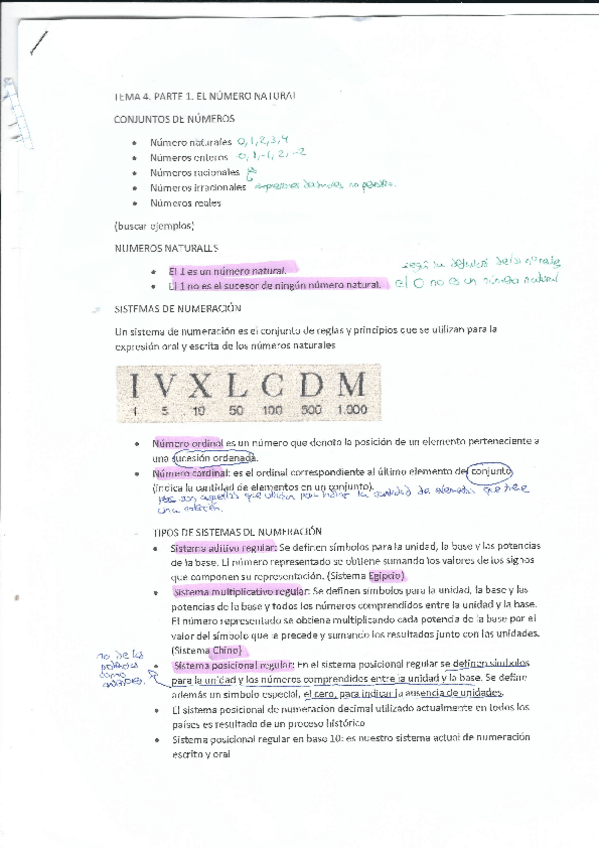 TEMA 4. PARTE 1. EL NÚMERO NATURAL
CONJUNTOS DE NÚMEROS
• Número naturales 0, 1, 2, 3, 4
• Números enteros 0, 1, -1, 2, -2
• Números racionales
• Números irracionales expresiones decimales no periódicas.
• Números reales
(buscar ejemplos)
NUMEROS NATURALES
• El 1 es un número natural.
• El 1 no es el sucesor de ningún número natural.
el 0 no es un número natural
SISTEMAS DE NUMERACIÓN
Un sistema de numeración es el conjunto de reglas y principios que se utilizan para la
expresión oral y escrita de los números naturales
I V X L C D M
1 5 10 50 100 500 1.000
• Número ordinal es un número que denota la posición de un elemento perteneciente a
una sucesión ordenada.
• Número cardinal: es el ordinal correspondiente al último elemento del conjunto
(indica la cantidad de elementos en un conjunto).
son aquellos que utilizan para indicar la cantidad de elementos que tiene
una
TIPOS DE SISTEMAS DE NUMERACIÓN
• Sistema aditivo regular: Se definen símbolos para la unidad, la base y las potencias
de la base. El número representado se obtiene sumando los valores de los signos
que componen su representación. (Sistema Egipcio)
• Sistema multiplicativo regular: Se definen símbolos para la unidad, la base y las
potencias de la base y todos los números comprendidos entre la unidad y la base.
El número representado se obtiene multiplicando cada potencia de la base por el
valor del símbolo que la precede y sumando los resultados junto con las unidades.
(Sistema Chino)
no de las
potencias
como
• Sistema posicional regular: En el sistema posicional regular se definen símbolos
para la unidad y los números comprendidos entre la unidad y la base. Se define
además un símbolo especial, el cero, para indicar la ausencia de unidades.
• El sistema posicional de numeracion decimal utilizado actualmente en todos los
países es resultado de un proceso histórico
• Sistema posicional regular en base 10: es nuestro sistema actual de numeración
escrito y oral